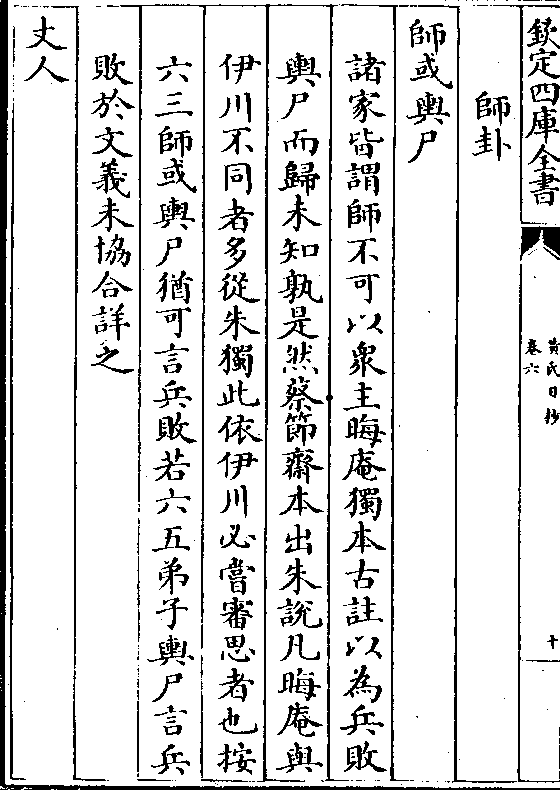 欽定四庫全書
黃氏日抄
卷六
十
師卦
師或輿尸
諸家皆謂師不可以衆主晦庵獨本古註以為兵敗
輿尸而歸未知孰是然蔡節齋本出朱說凡晦庵與
伊川不同者多從朱獨此依伊川必嘗審思者也按
六三師或輿尸猶可言兵敗若六五弟子輿尸言兵
敗於文義未協合詳之
丈人